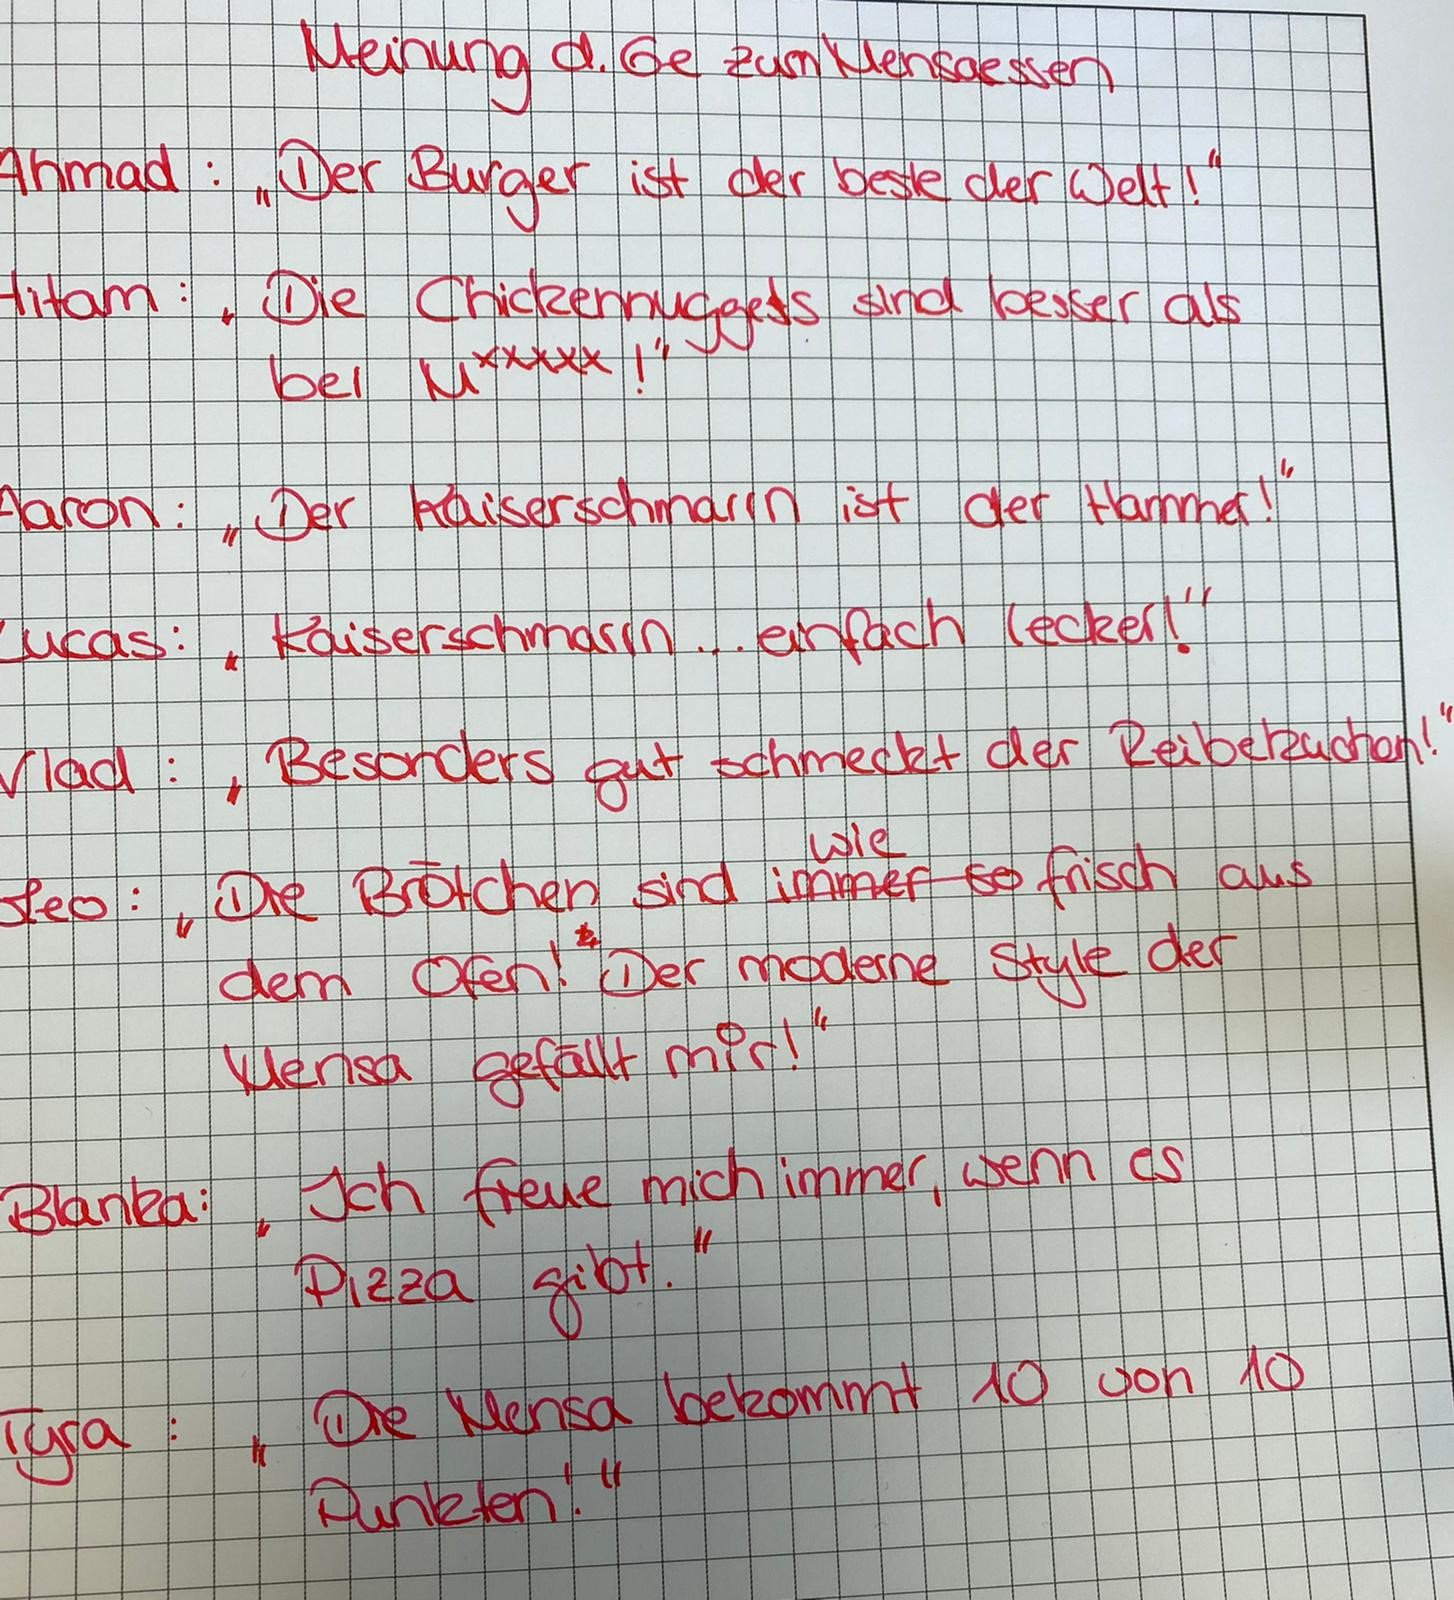 Meinung d. 6e zum Mensaessen
Ahmad: „Der Burger ist der beste der Welt!“
Hitam: „Die Chickennuggets sind besser als
bei Mxxxxx!“
Aaron: „Der Kaiserschmarrn ist der Hammer!“
Lucas: „Kaiserschmarrn... einfach lecker!“
Vlad: „Besonders gut schmeckt der Reibekuchen!“
wie
Leo: „Die Brötchen sind immer so frisch aus
dem Ofen! Der moderne Style der
Mensa gefällt mir!“
Blanka: „Ich freue mich immer, wenn es
Pizza gibt.“
Tyra: „Die Mensa bekommt 10 von 10
Punkten!“